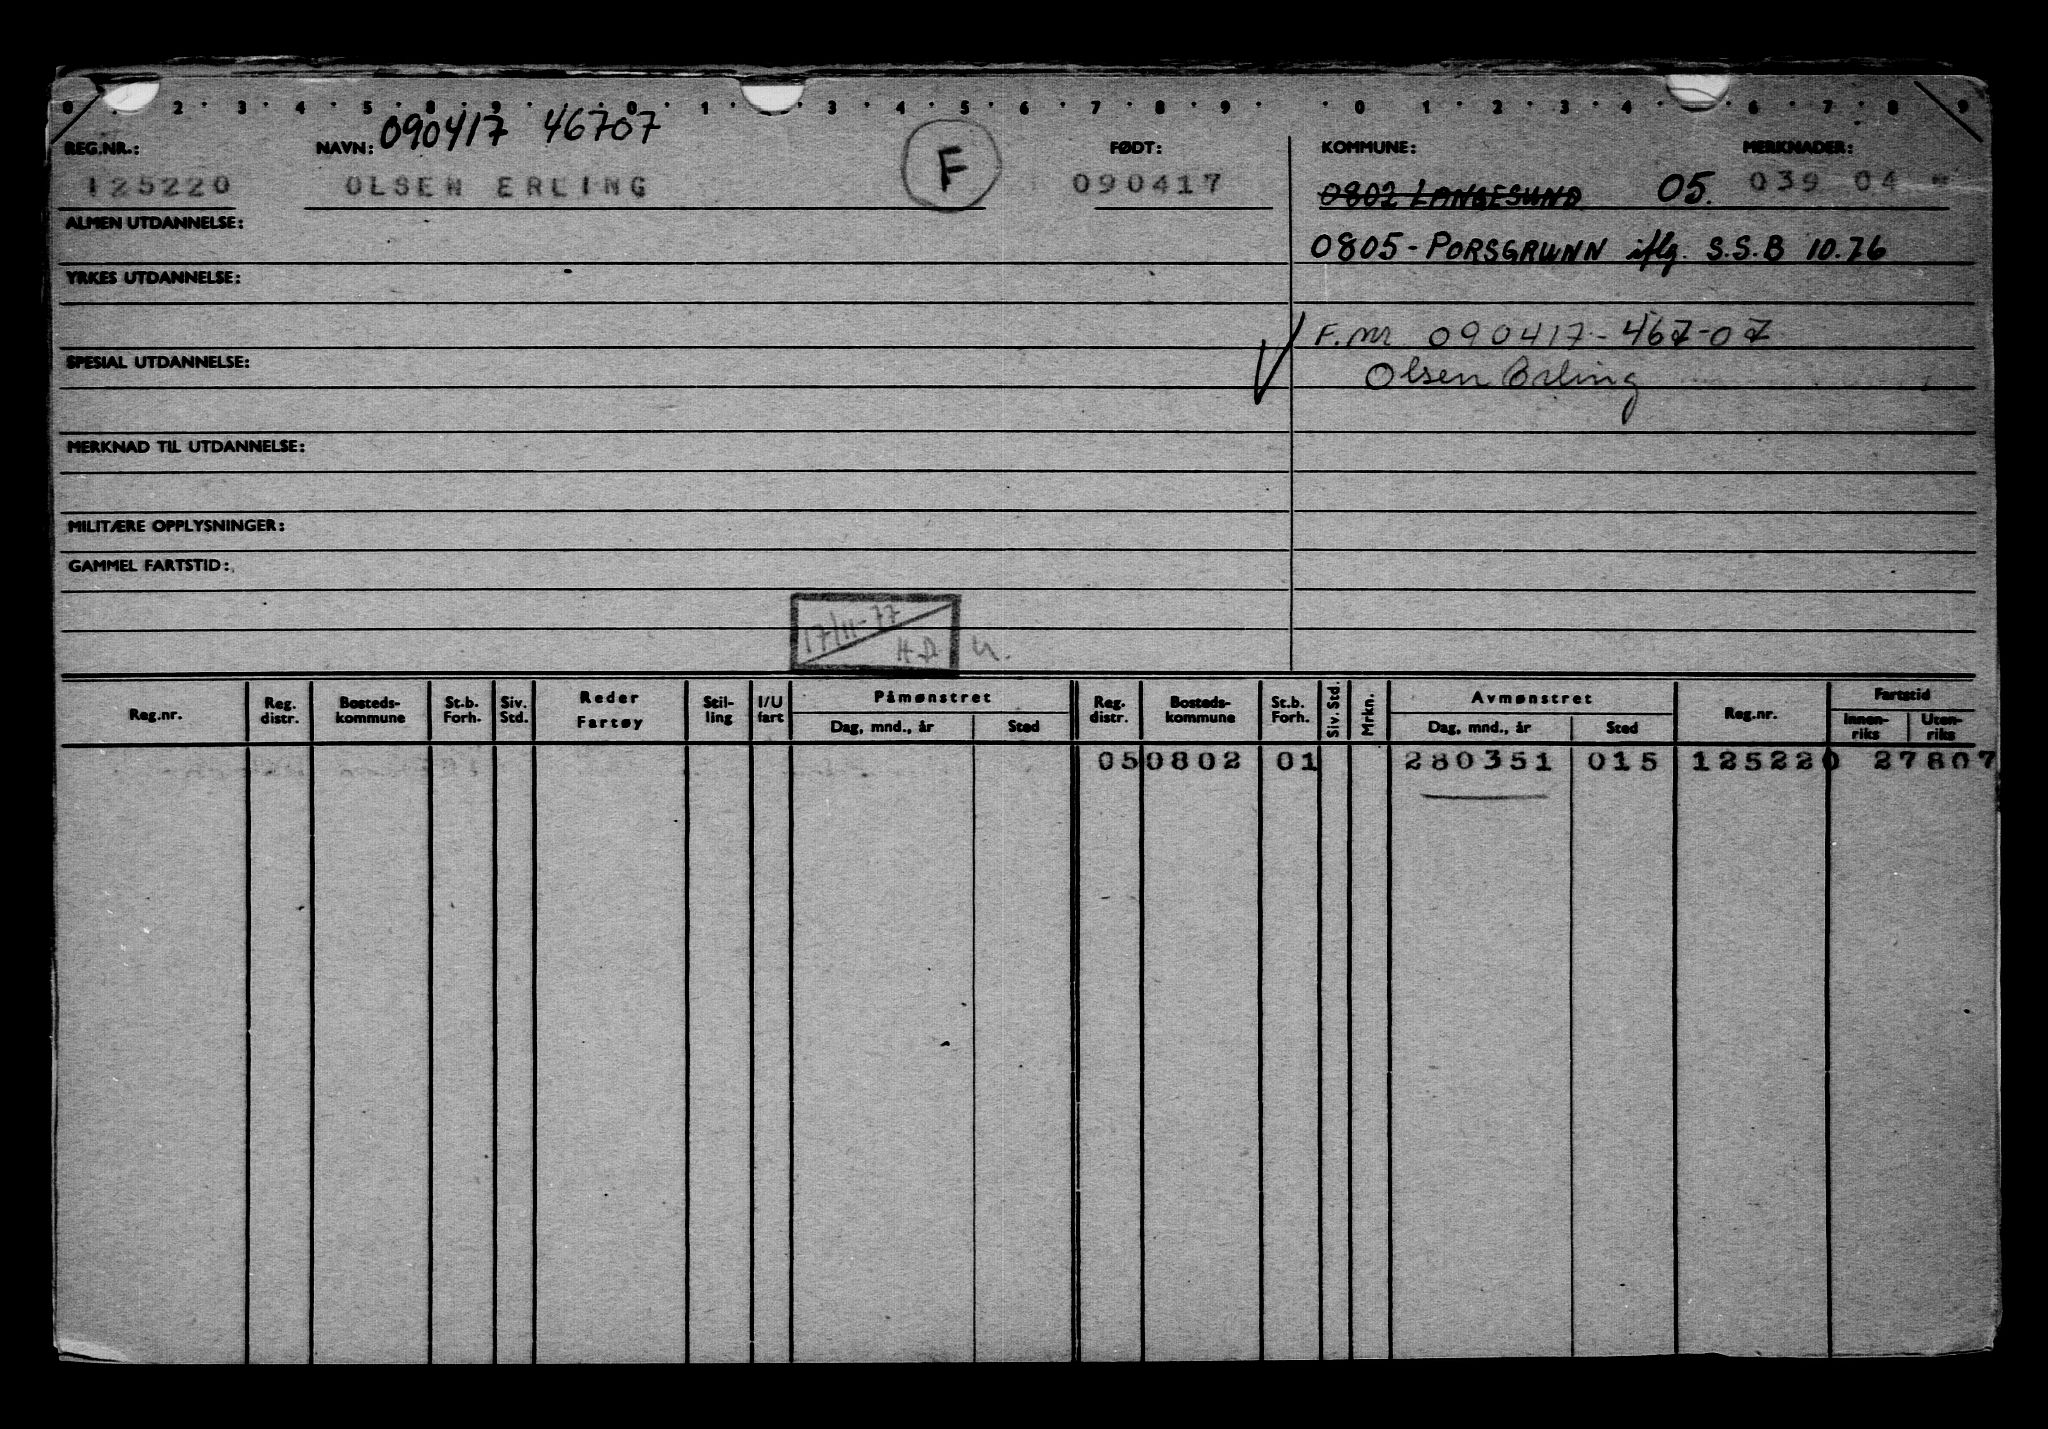 0 . 2 . 3 . 4 . 5 . 8 . 9 . . 0 . 1 . . 3 . 4 . 5 . 6 . 7 . 8 . 9 . . 0 . 1 . 2 . 3 . 4 . . 6 . 7 . 8 . 9
090417 46707
REG.NR.: NAVN: FØDT: KOMMUNE: MERKNADER:
125220 OLSEN ERLING F 090417 0802 LANGESUND 05. 039 04
ALMEN UTDANNELSE:
0805 - PORSGRUNN iflg. S.S.B 10.76
YRKES UTDANNELSE:
F.nr 090417-467-07
SPESIAL UTDANNELSE:
Olsen Erling
MERKNAD TIL UTDANNELSE:
MILITÆRE OPPLYSNINGER:
GAMMEL FARTSTID:
17/11-77
H.D. u.
Reg.nr. Reg. distr. Bosteds-kommune St.b. Forh. Siv. Std. Reder Fartøy Stil-ling I/U fart Påmønstret Dag, mnd., år Sted Reg. distr. Bosteds-kommune St.b. Forh. Siv. Std. Mrkn. Avmønstret Dag, mnd., år Sted Reg.nr. Fartstid Innen-riks Uten-riks
05 0802 01 280351 015 125220 27807